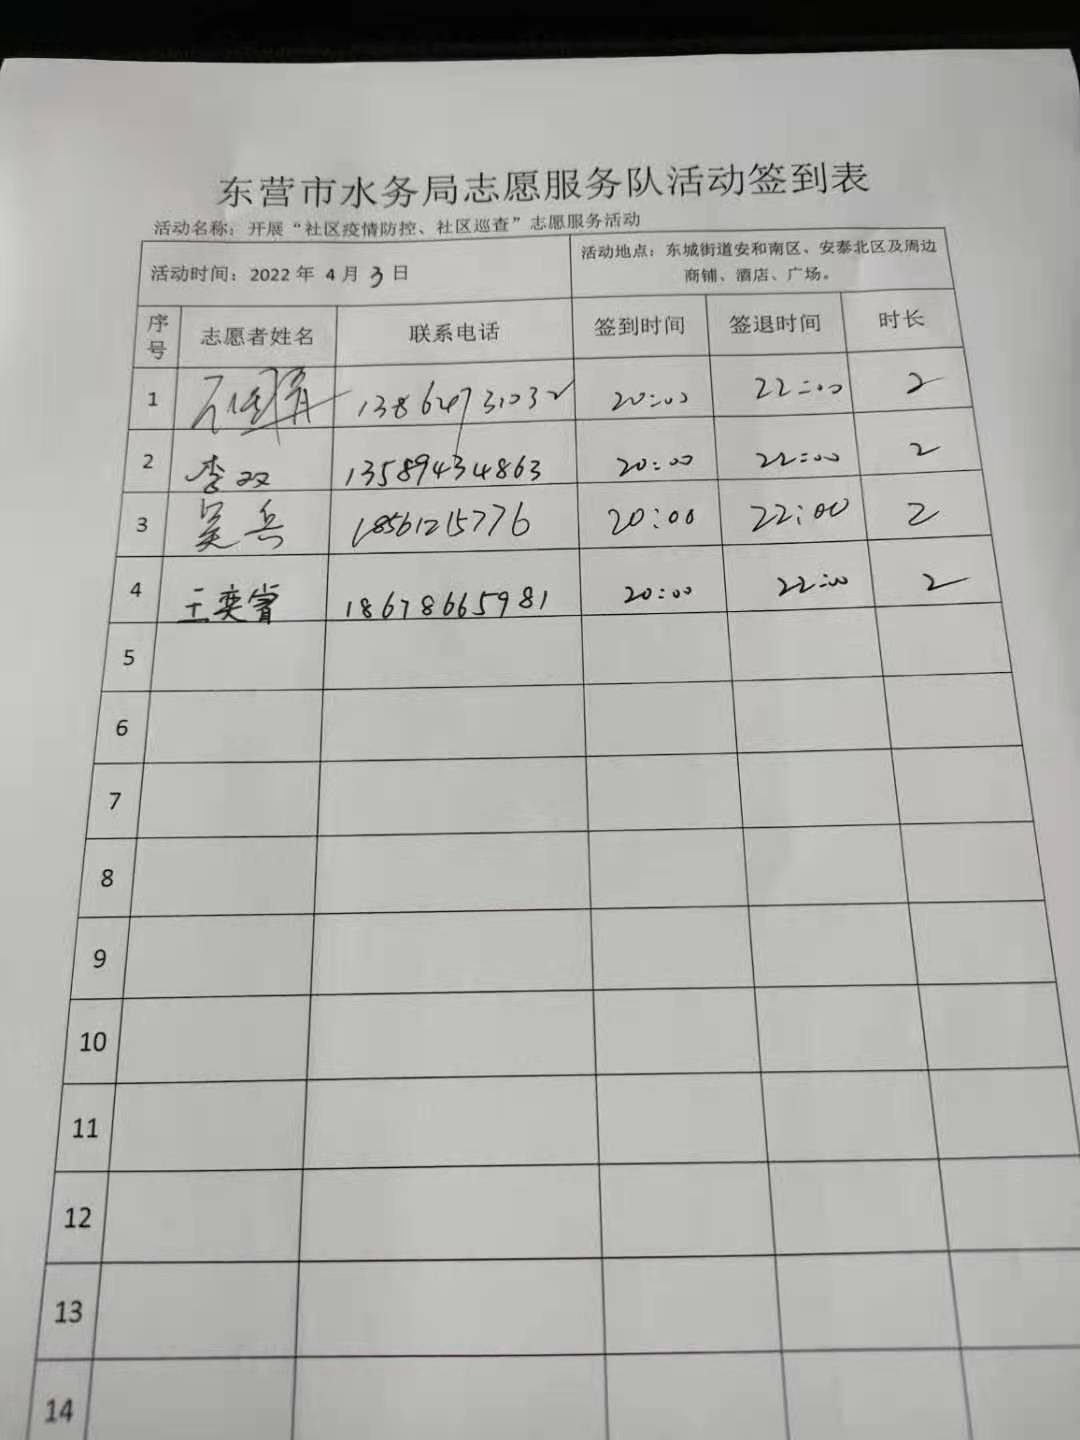 东营市水务局志愿服务队活动签到表
活动名称：开展“社区疫情防控、社区巡查”志愿服务活动
活动时间：2022 年 4 月 3 日
活动地点：东城街道安和南区、安泰北区及周边
商铺、酒店、广场。
序号 志愿者姓名 联系电话 签到时间 签退时间 时长
1 13864731032 20:00 22:00 2
2 李双 13589434863 20:00 22:00 2
3 吴兵 18561215776 20:00 22:00 2
4 王奕睿 18678665981 20:00 22:00 2
5
6
7
8
9
10
11
12
13
14